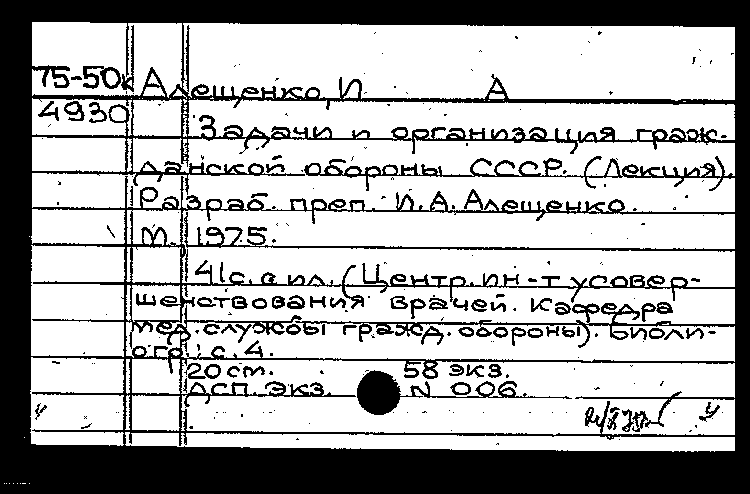 75-50к Алещенко, И А
4930 Задачи и организация граж-
данской обороны СССР. (Лекция).
Разраб. преп. И.А. Алещенко.
М. 1975.
41с. с ил. (Центр. ин-т усовер-
шенствования врачей. Кафедра
мед. службы гражд. обороны). Библи-
огр.: с. 4.
20 см. 58 экз.
ДСП. Экз. N 006.